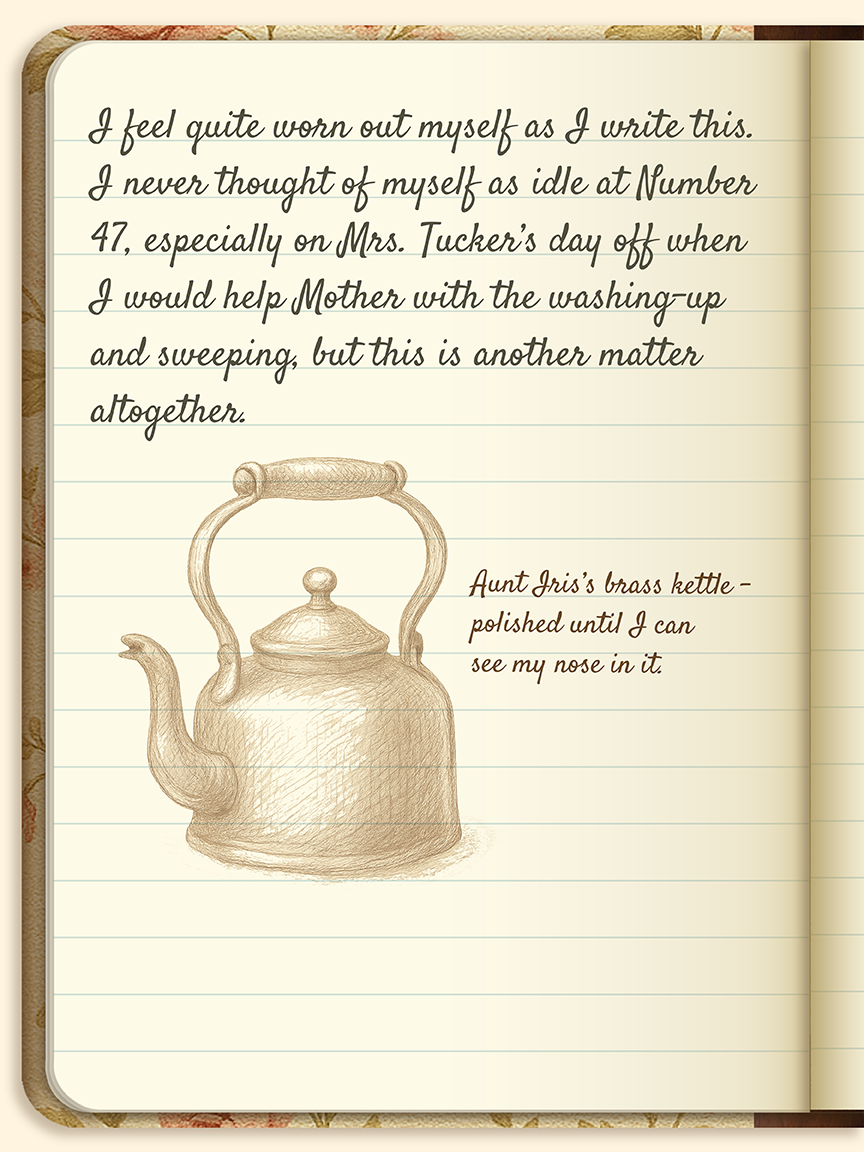 I feel quite worn out myself as I write this.
I never thought of myself as idle at Number
47, especially on Mrs. Tucker's day off when
I would help Mother with the washing-up
and sweeping, but this is another matter
altogether.
Aunt Iris's brass kettle –
polished until I can
see my nose in it.